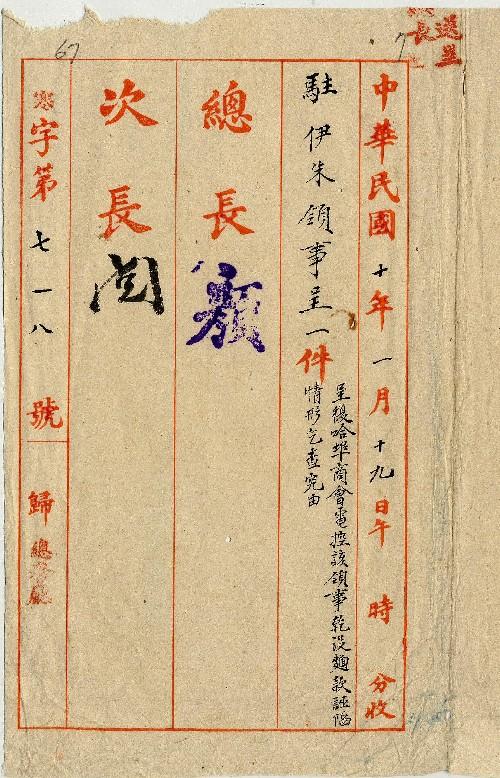 67
7
送呈
長
中華民國十年一月十九日午 時 分收
駐伊朱領事呈一件
呈復哈埠商會電控該領事乾沒麵款誣陷
情形乞查究由
總長
顏
次長
閱
寒字第七一八號
歸總務廳